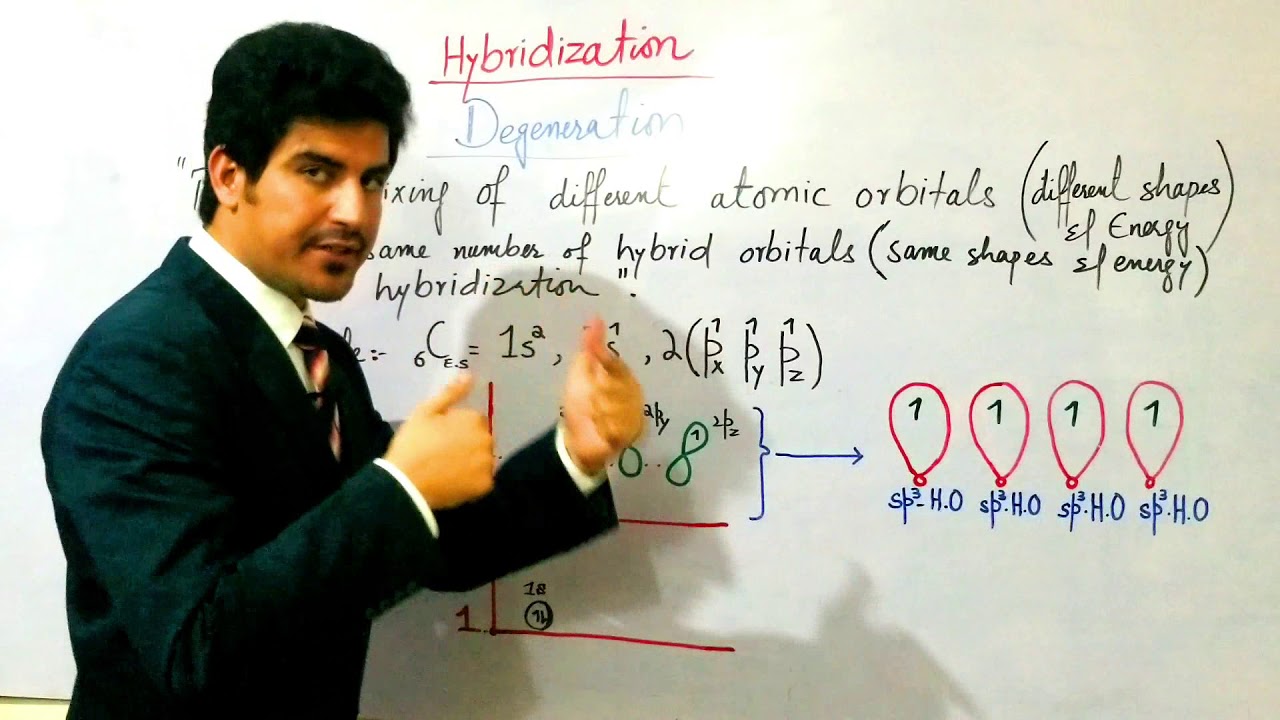 Hybridization
Degeneration
"T ixing of different atomic orbitals (different shapes
& Energy)
same number of hybrid orbitals (same shapes & energy)
hybridization".
le:- ₆C E.S = 1s², s¹, 2(p¹x p¹y p¹z)
2py 2pz
1 1 1 1 1
sp³-H.O sp³.H.O sp³.H.O sp³.H.O
1s
1 1L